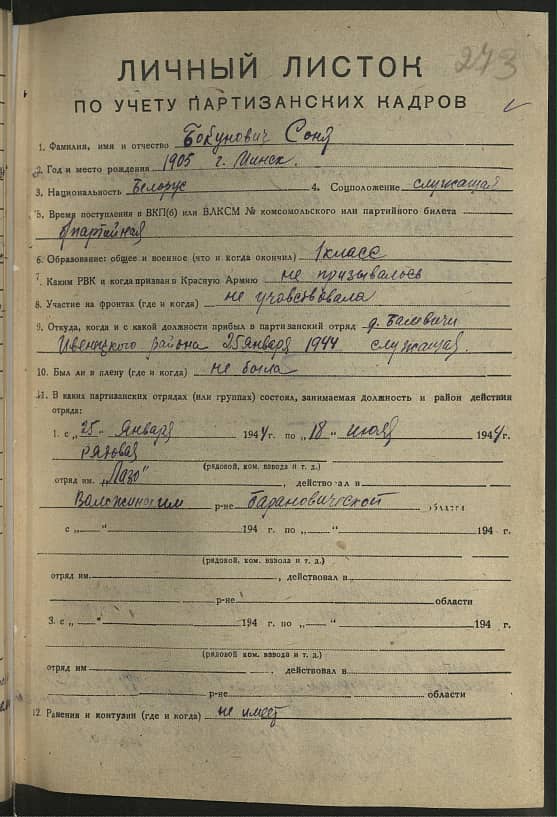 273
ЛИЧНЫЙ ЛИСТОК
ПО УЧЕТУ ПАРТИЗАНСКИХ КАДРОВ
1. Фамилия, имя и отчество Бобунович Соня
2. Год и место рождения 1905 г. Минск.
3. Национальность Белорус 4. Соцположение служащая
5. Время поступления в ВКП(б) или ВЛКСМ № комсомольского или партийного билета
б/партейная
6. Образование: общее и военное (что и когда окончил) 1 класс
7. Каким РВК и когда призван в Красную Армию не призывалось
8. Участие на фронтах (где и когда) не учовствовала
9. Откуда, когда и с какой должности прибыл в партизанский отряд д.
Ивенецкого района 25 января 1944 служащая.
10. Был ли в плену (где и когда) не была
11. В каких партизанских отрядах (или группах) состоял, занимаемая должность и район действия
отряда:
1. с „25" января 1944 г. по „18" июля 1944 г.
рядовая
(рядовой, ком. взвода и т. д.)
отряд им. „Лазо" , действовал в
Валожинским р-не Барановической области
с „ " 194 г. по „ " 194 г.
(рядовой, ком. взвода и т. д.)
отряд им. , действовал в
р-не области
3. с „ " 194 г. по „ " 194 г.
(рядовой, ком. взвода и т. д.)
отряд им , действовал в
р-не области
12. Ранения и контузии (где и когда) не имеет